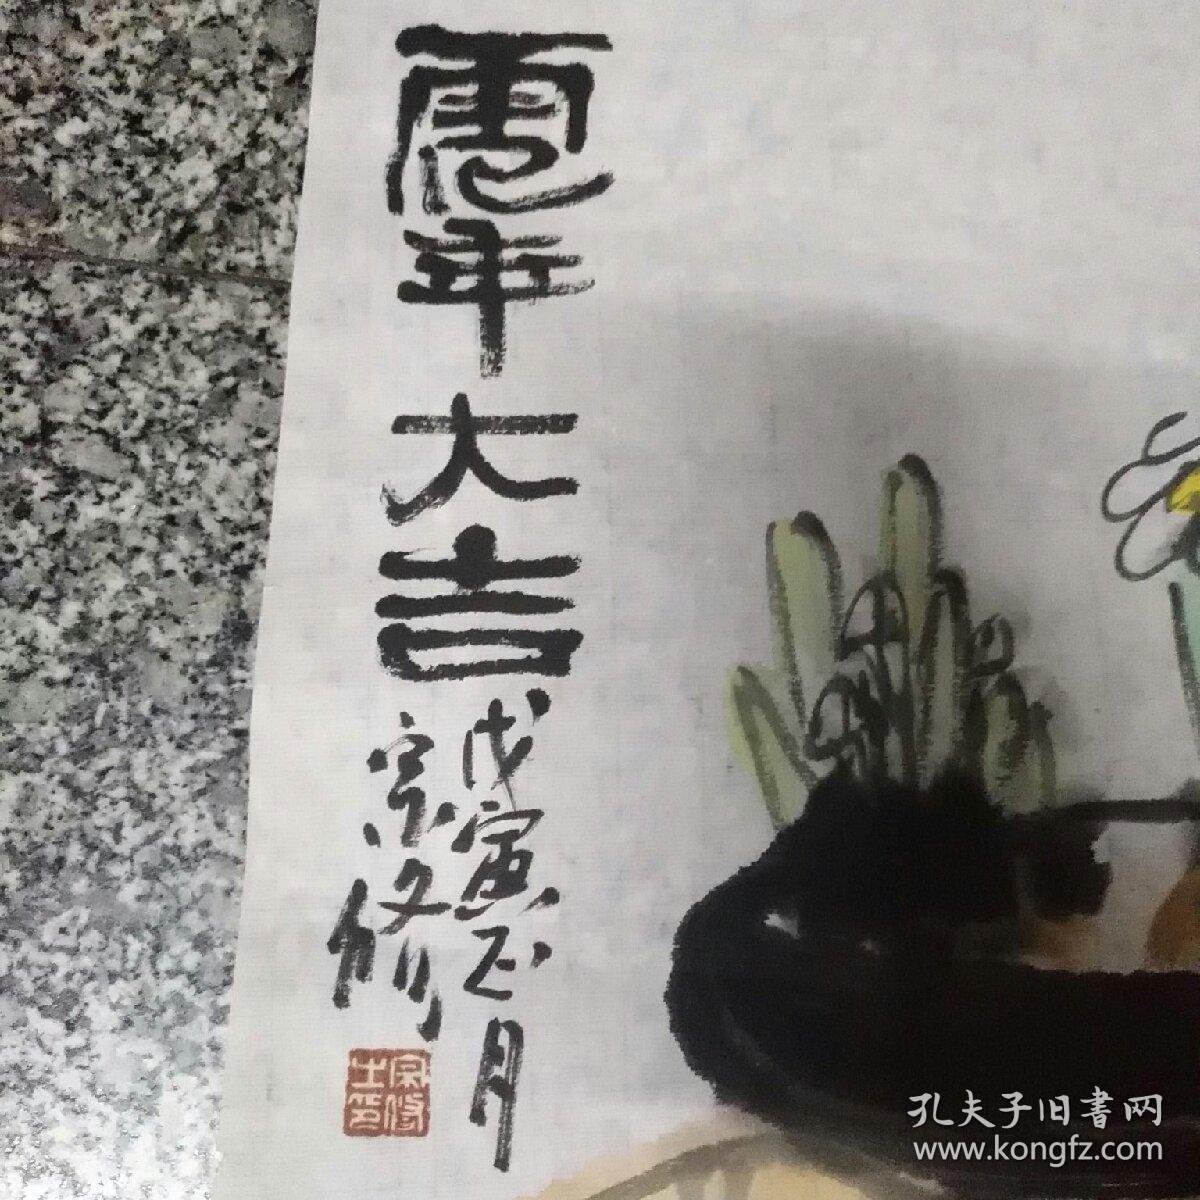 虎年大吉
戊寅正月
宗修
宗修
之印
孔夫子旧書网
www.kongfz.com